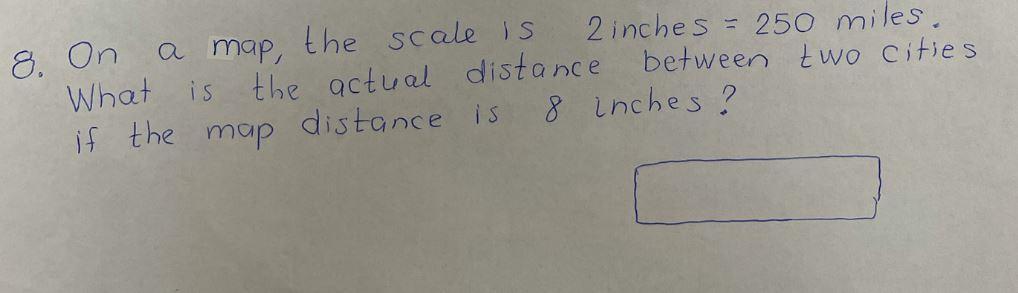 8. On a map, the scale is 2 inches = 250 miles.
What is the actual distance between two cities
if the map distance is 8 inches?